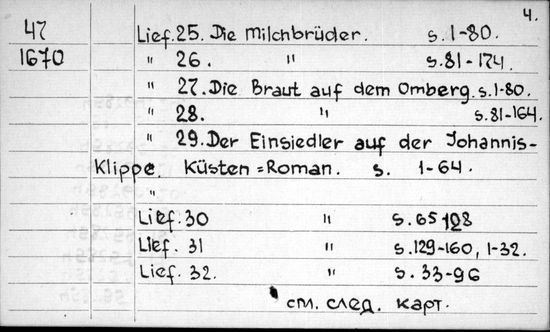 4.
47 Lief. 25. Die Milchbrüder. S. 1-80.
1670 " 26. " S. 81-174.
" 27. Die Braut auf dem Omberg. S. 1-80.
" 28. " S. 81-164.
" 29. Der Einsiedler auf der Johannis-
Klippe. Küsten=Roman. S. 1-64.
"
Lief. 30 " S. 65 128
Lief. 31 " S. 129-160, 1-32.
Lief. 32. " S. 33-96
см. след. карт.